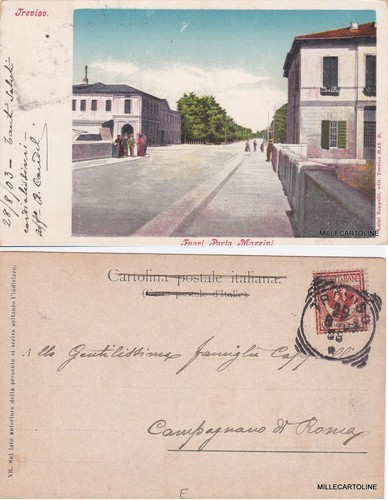 Treviso.
28/8/03 - Tanti saluti
cordialissimi
aff. A.
Luigi Zoppelli, edit. Treviso
MILLECARTOLINE
Fuori Porta Mazzini
Cartolina postale italiana.
(Carte postale d'Italie).
NB. Sul lato anteriore della presente si scrive soltanto l'indirizzo.
Alla Gentilissima famiglia
Campagnano di Roma
E
MILLECARTOLINE